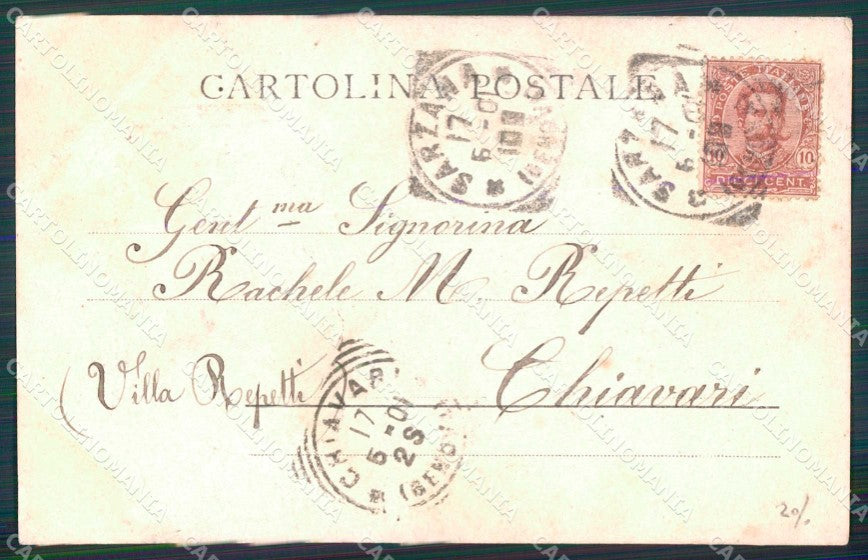 CARTOLINA POSTALE
SARZANA
17
5-01
10M
(GENOVA)
*
SARZANA
17
5-01
10M
POSTE ITALIANE
10
10
DIECI CENT.
Gent.ma Signorina
Rachele M. Repetti
Chiavari
(Villa Repetti
CHIAVARI
17
5-01
2S
(GENOVA)
*
20/.
CARTOLINOMANIA